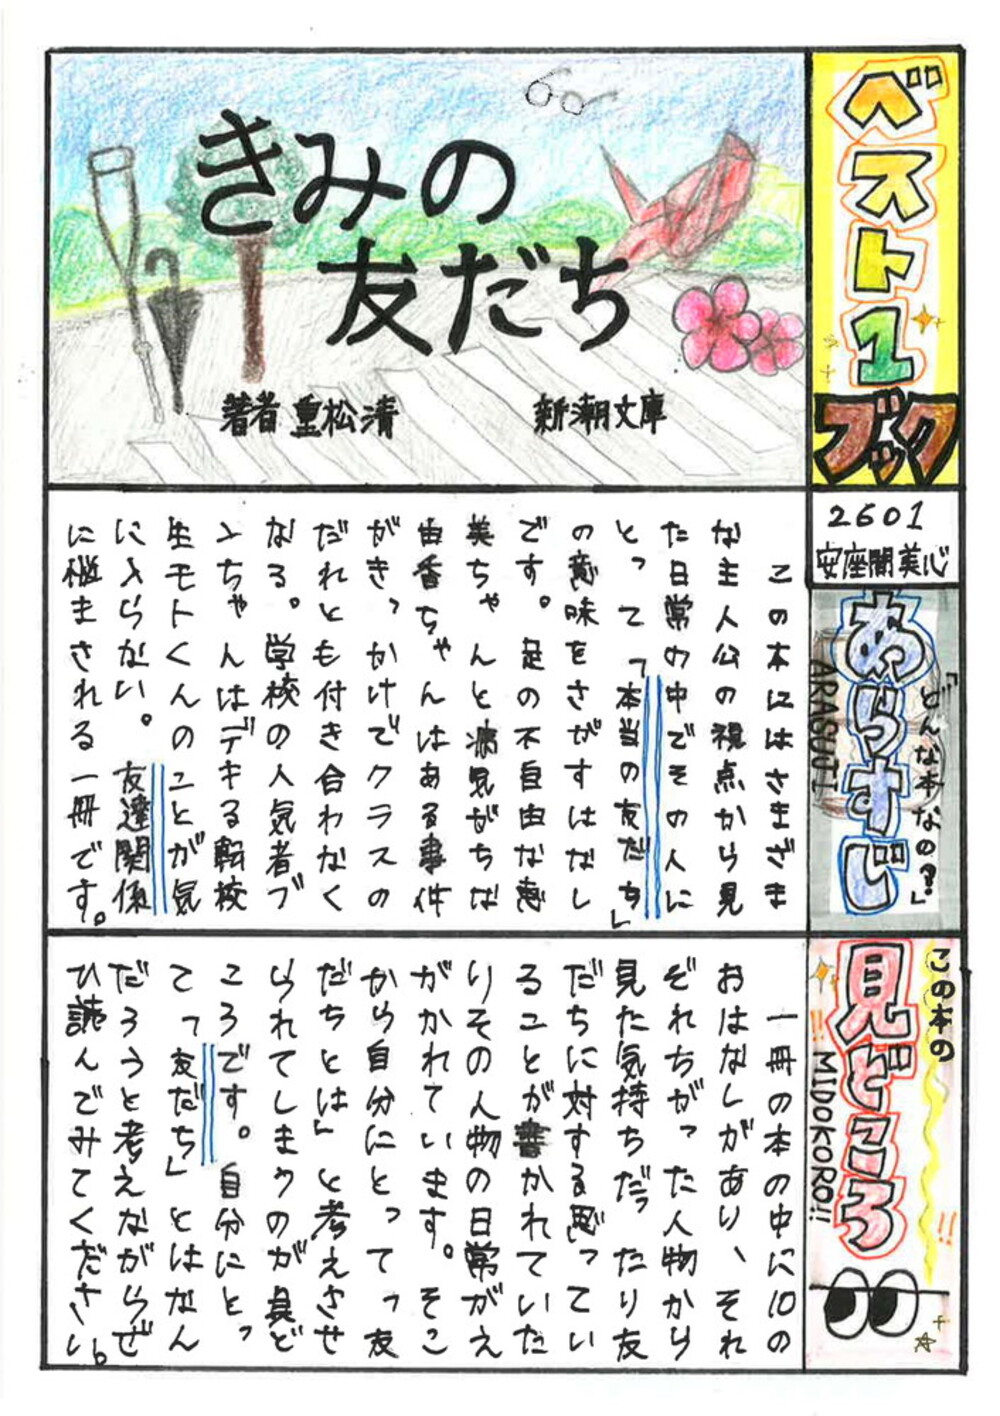 ベスト1ブック
きみの
友だち
著者 重松清
新潮文庫
2601
安座間美心
あらすじ
「どんな本なの?」
ARASUJI
この本にはさまざま
な主人公の視点から見
た日常の中でその人に
とって「本当の友だち」
の意味をさがすはなし
です。足の不自由な恵
美ちゃんと病気がちな
由香ちゃんはある事件
がきっかけでクラスの
だれとも付き合わなく
なる。学校の人気者ブ
ンちゃんはデキる転校
生モトくんのことが気
に入らない。友達関係
に悩まされる一冊です。
この本の
見どころ
MIDOKORO!!
一冊の本の中に10の
おはなしがあり、それ
ぞれちがった人物から
見た気持ちだったり友
だちに対する思ってい
ることが書かれていた
りその人物の日常がえ
がかれています。そこ
から自分にとって「友
だちとは」と考えさせ
られてしまうのが見ど
ころです。自分にとっ
て「友だち」とはなん
だろうと考えながらぜ
ひ読んでみてください。